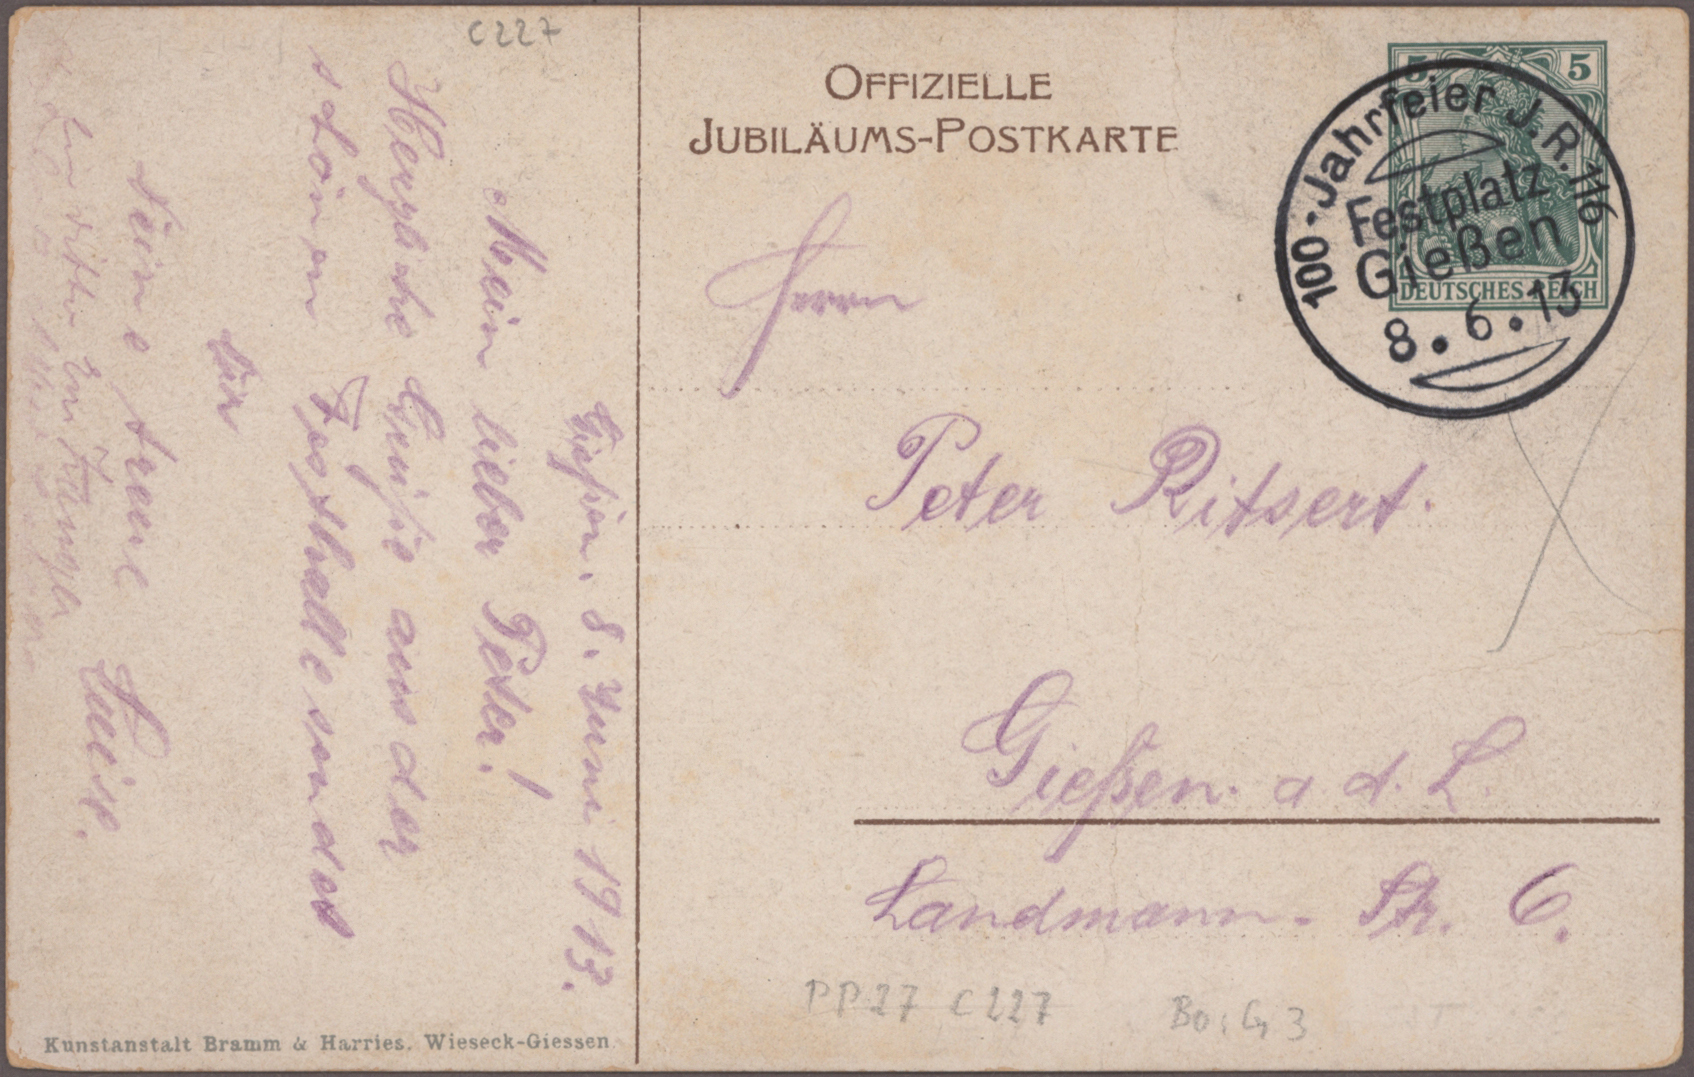 C227
OFFIZIELLE
JUBILÄUMS-POSTKARTE
5 5
DEUTSCHES REICH
100-Jahrfeier J.R.116
Festplatz
Gießen
8.6.13
Herrn
Peter Ritsert.
Gießen. a. d. L.
Landmann-Str. 6.
Gießen. 8. Juni 1913.
Mein lieber Peter!
Herzliche Grüße aus der
schönen Festhalle sendet
Dir
Deine treue Luise.
PP27 C227
Bo: G 3
Kunstanstalt Bramm & Harries. Wieseck-Giessen